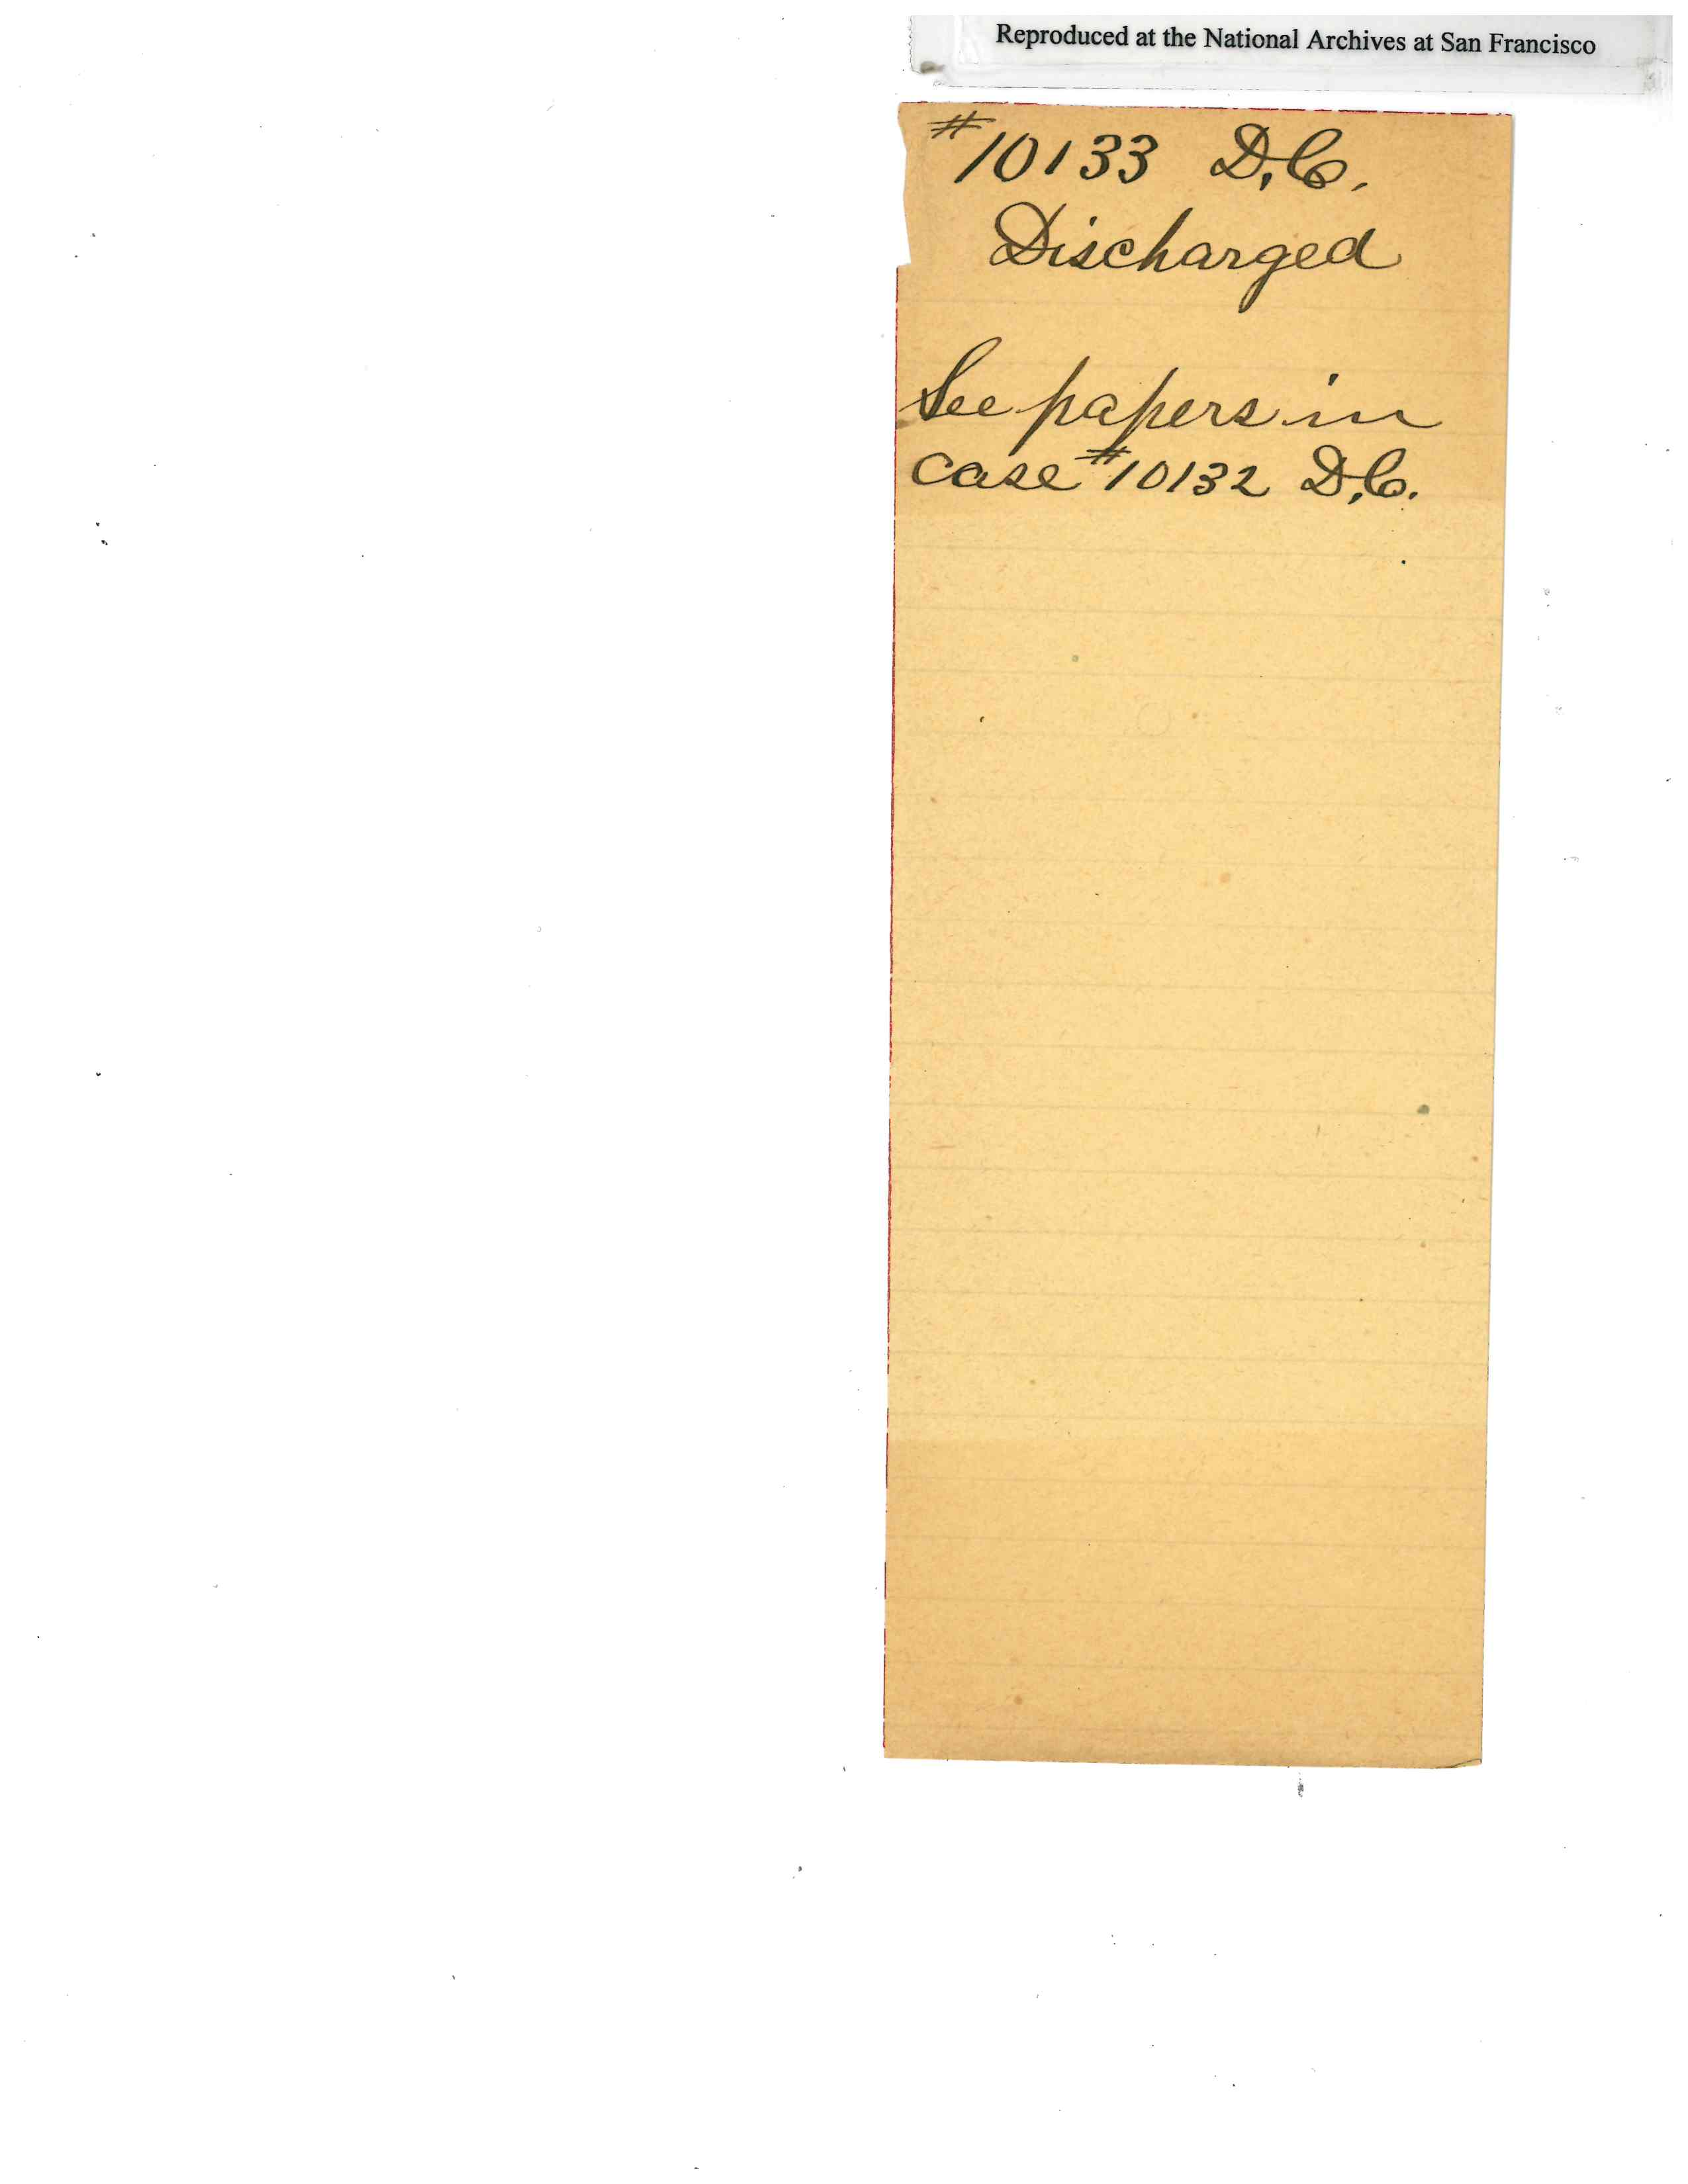 Reproduced at the National Archives at San Francisco
#10133 D.C.
Discharged
See papers in
case #10132 D.C.